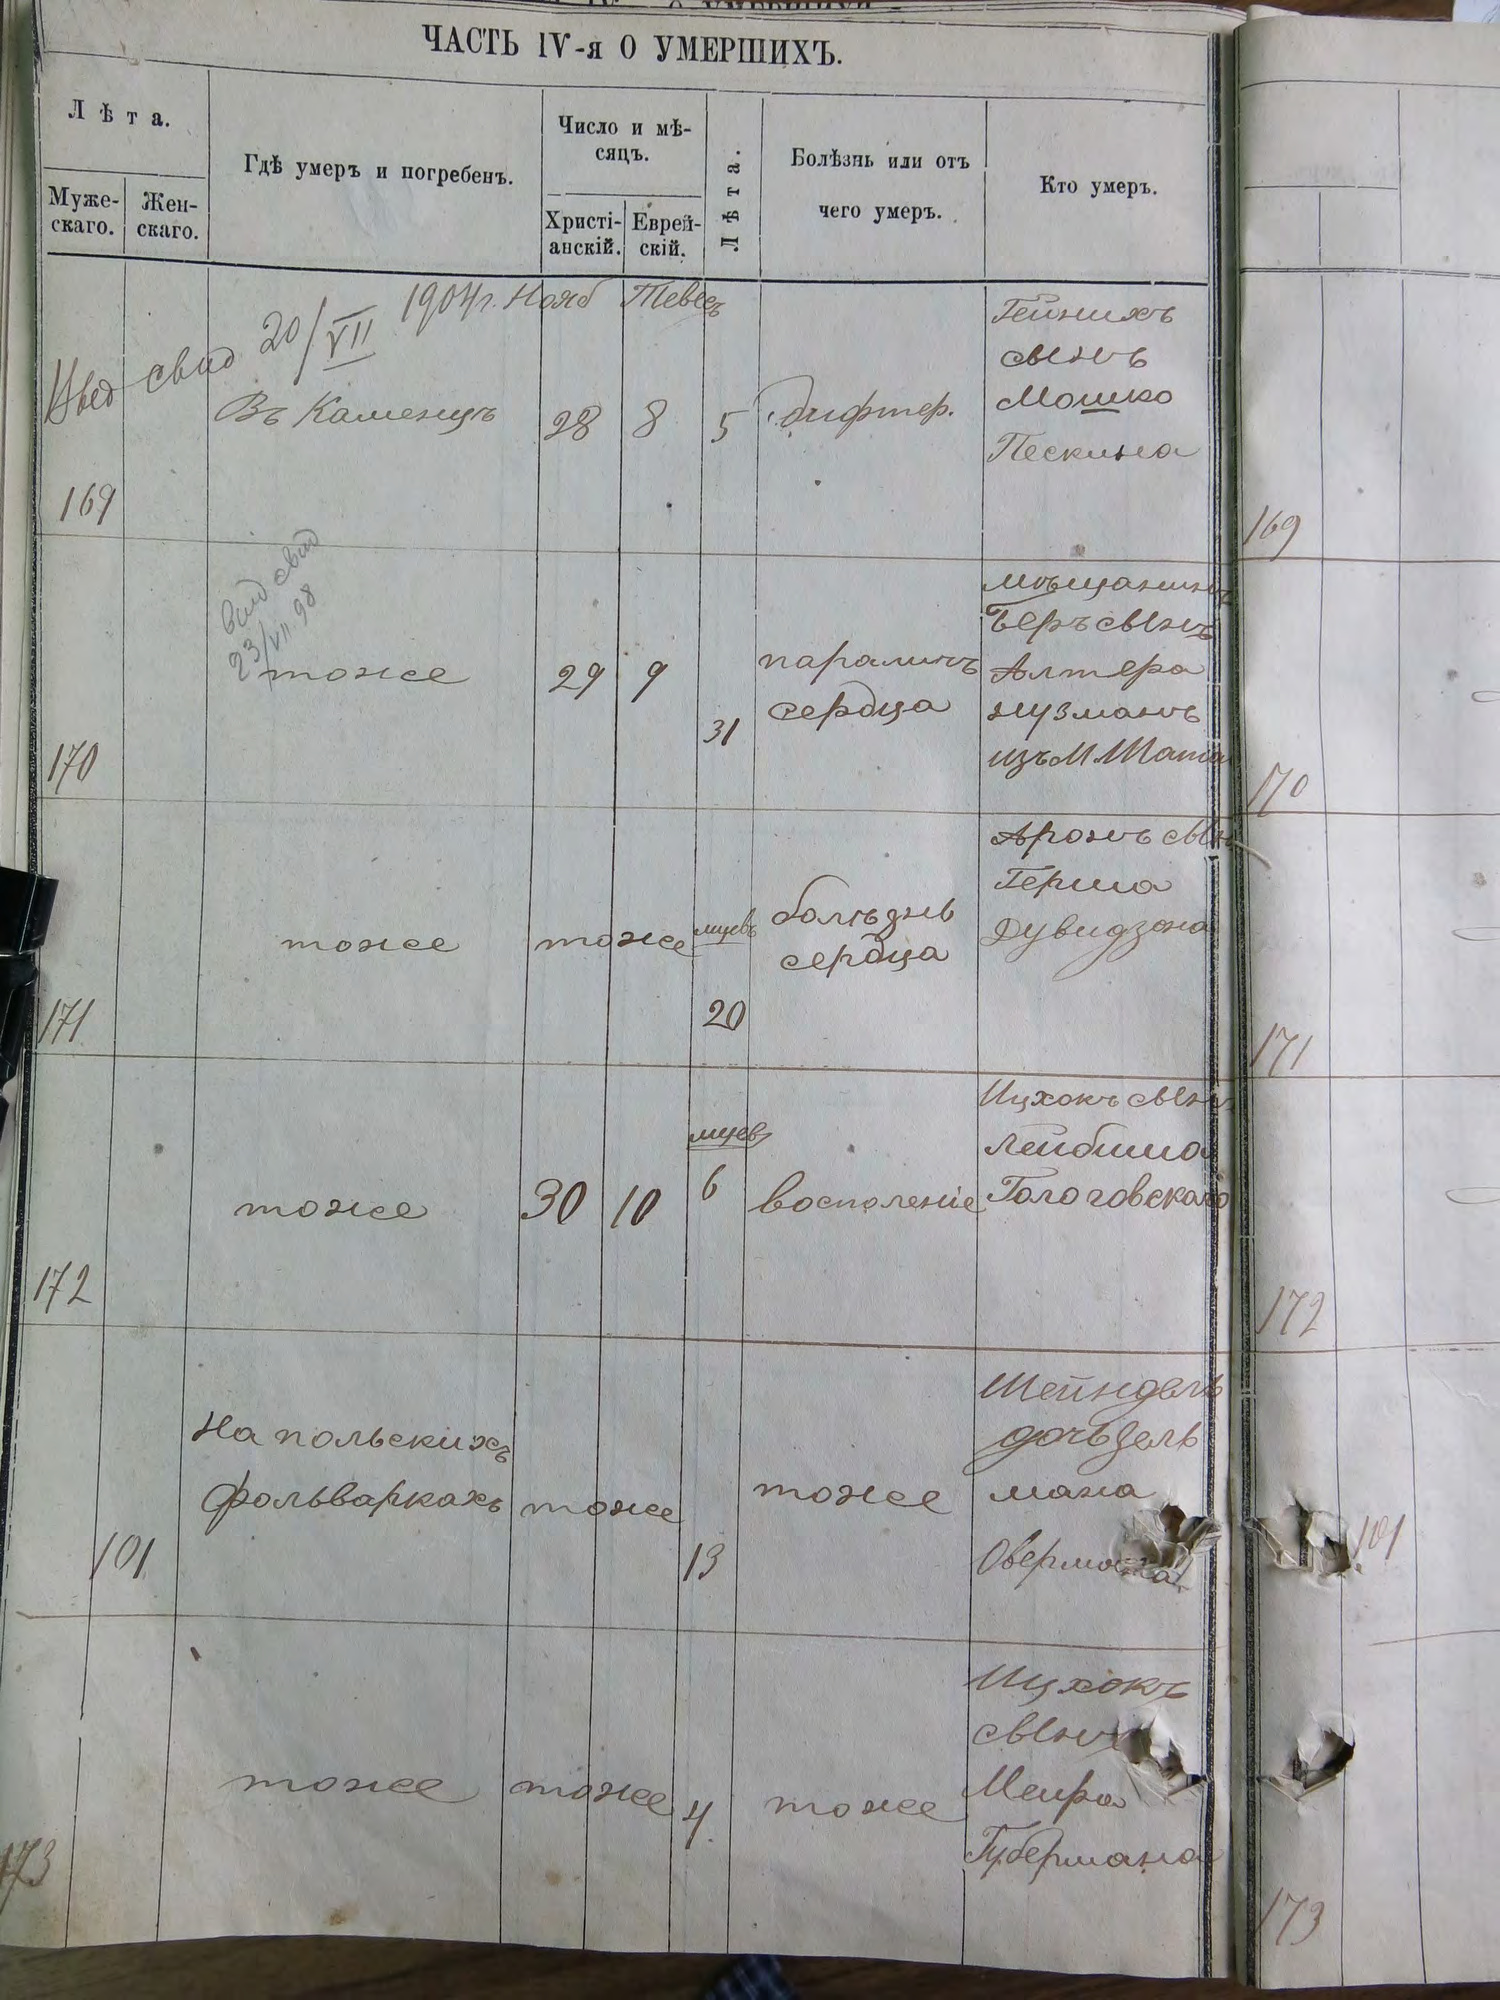 ЧАСТЬ IV-я О УМЕРШИХЪ.
Лѣта.
Муже-
скаго.
Жен-
скаго.
Гдѣ умеръ и погребенъ.
Число и мѣ-
сяцъ.
Христі-
анскій.
Еврей-
скій.
Лѣта.
Болѣзнь или отъ
чего умеръ.
Кто умеръ.
свид 20/VII 1904г.
Нояб
Тевесъ
169
Въ Каменцѣ
28
8
5
дифтер.
Гейнихъ
сынъ
Мошко
Пескина
169
выд свид
23/VII 98
170
тоже
29
9
31
параличъ
сердца
мѣщанинъ
Беръ сынъ
Алтера
Нузманъ
изъ М. Шата
170
171
тоже
тоже
мцевъ
20
болѣзнь
сердца
Аронъ сын
Герша
Дувидзона
171
172
тоже
30
10
мцев
6
воспаленіе
Ицхокъ сынъ
Лейбиша
Гологовскаго
172
101
На польскихъ
фольваркахъ
тоже
13
тоже
Шейндель
дочь Зель
мана
Овермана
101
173
тоже
тоже
4
тоже
Ицхокъ
сынъ
Меира
Губермана
173